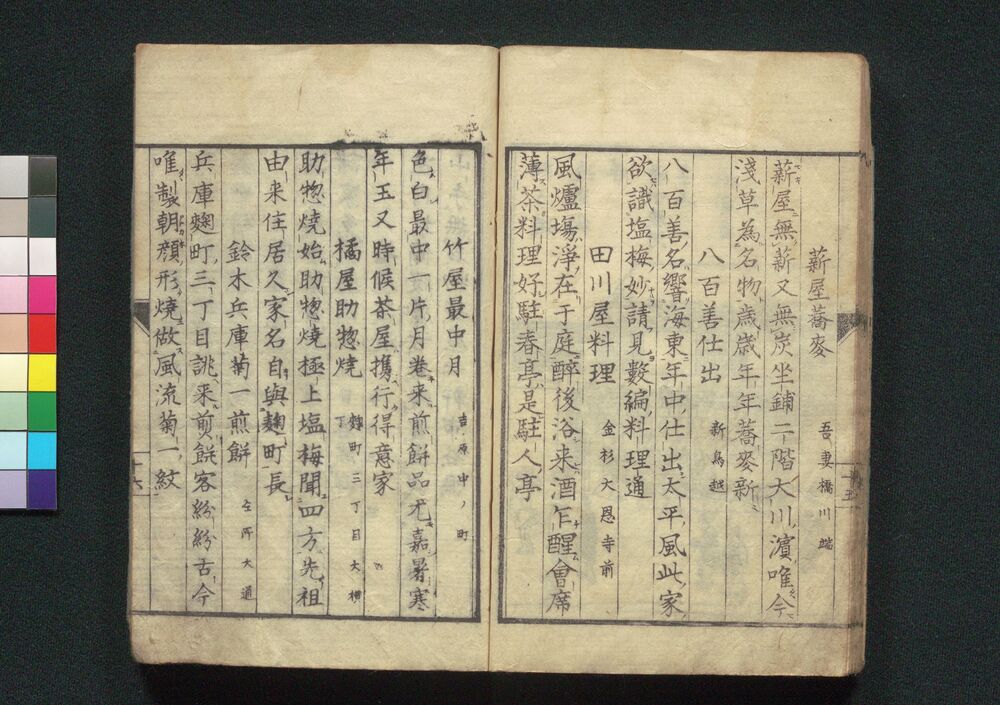 薪屋蕎麥 吾妻橋川端
薪屋無薪又無炭坐鋪二階大川濱唯今
淺草為名物歳歳年年蕎麥新
八百善仕出 新鳥越
八百善名響海東年中仕出太平風此家
欲識塩梅妙請見數編料理通
田川屋料理 金杉大恩寺前
風爐塲淨在于庭醉後浴来酒乍醒會席
薄茶料理好駐春亭是駐人亭
竹屋最中月 吉原中ノ町
色白最中一片月卷来煎餅品尤嘉暑寒
年玉又時候茶屋携行得意家
橘屋助惣燒 麹町三丁目大横丁
助惣燒始助惣燒極上塩梅聞四方先祖
由来住居久家名自與麹町長
鈴木兵庫菊一煎餅 仝所大通
兵庫麴町三丁目誂来煎餅客紛紛古今
唯製朝顔形燒做風流菊一紋